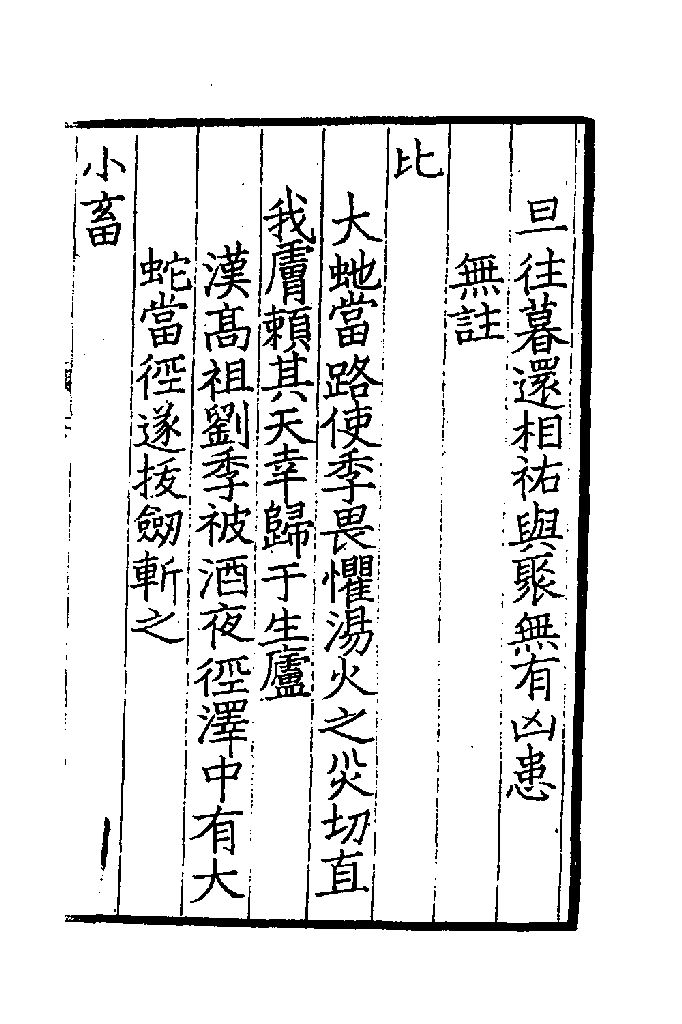 旦往暮還相祐與聚無有凶患
無註
比
大虵當路使季畏懼湯火之災切直
我膚賴其天幸歸于生廬
漢高祖劉季被酒夜徑澤中有大
蛇當徑遂拔劔斬之
小畜